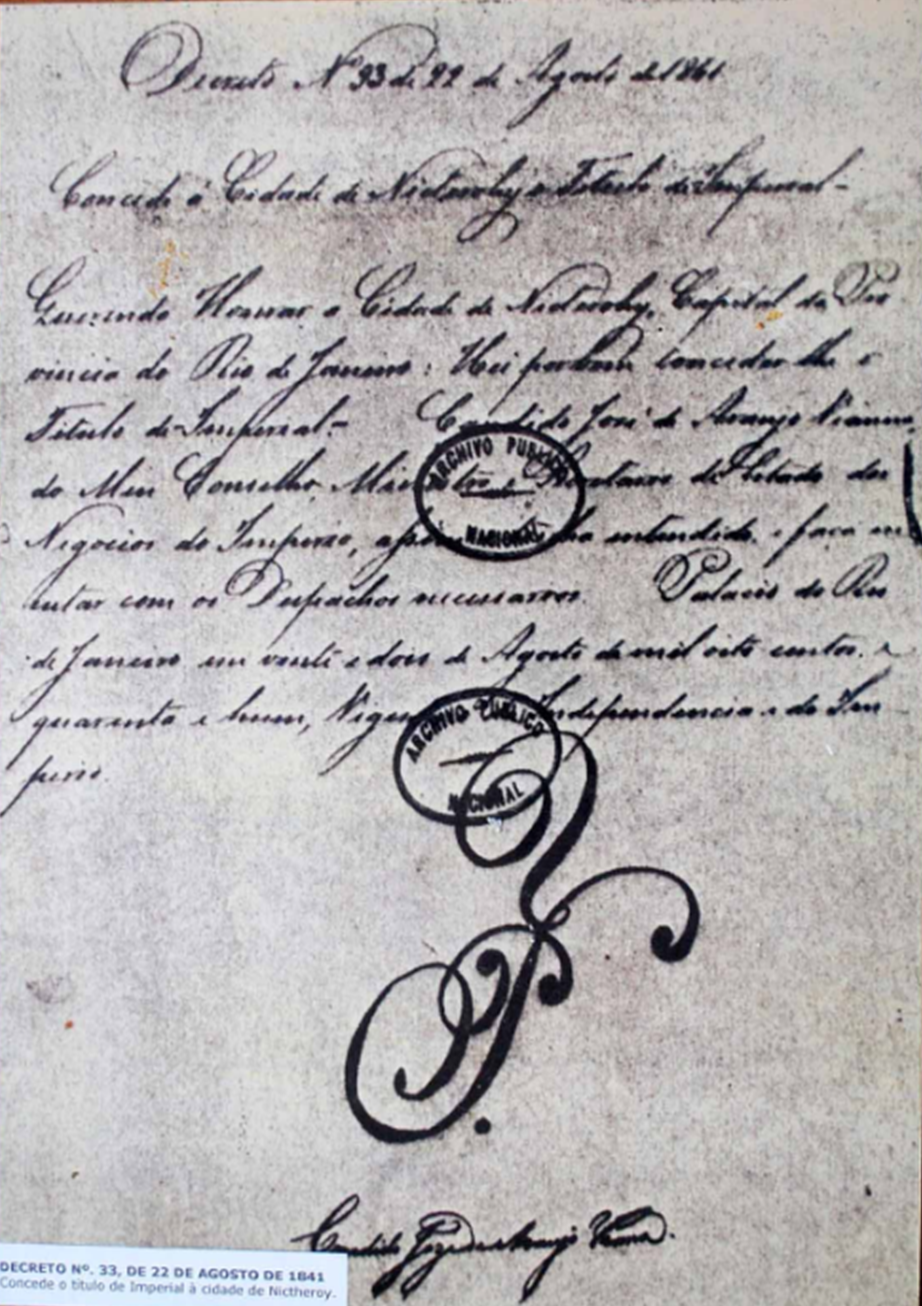 Decreto Nº 93 de 22 de Agosto de 1841
Concede á Cidade de Nictherohy o Titulo de Imperial-
Querendo Honrar a Cidade de Nictherohy, Capital da Pro
vincia do Rio de Janeiro: Hei por bem conceder lhe o
Titulo de Imperial.- Candido José de Araujo Vianna,
do Meu Conselho, Ministro e Secretario de Estado dos
Negocios do Imperio, assim o tenha entendido, e faça ex
cutar com os Despachos necessarios. Palacio do Rio
de Janeiro em vinte e dois de Agosto de mil oito centos e
quarenta e hum, Independencia e do Im
perio.
ARCHIVO PUBLICO
NACIONAL
ARCHIVO PUBLICO
NACIONAL
Candido José de Araujo Vianna.
DECRETO Nº. 33, DE 22 DE AGOSTO DE 1841
Concede o título de Imperial à cidade de Nictheroy.